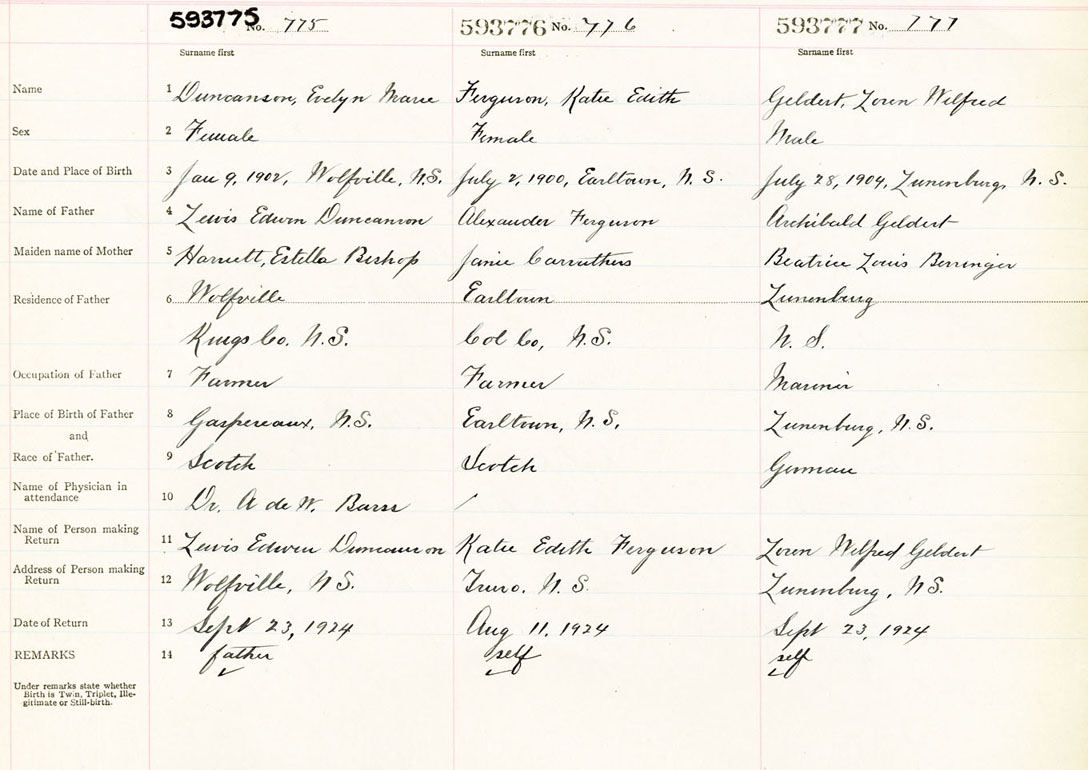 593775 No. 775 593776 No. 776 593777 No. 777
Surname first Surname first Surname first
Name 1 Duncanson, Evelyn Marie Ferguson, Katie Edith Geldert, Loren Wilfred
Sex 2 Female Female Male
Date and Place of Birth 3 Jan 9, 1902, Wolfville, N.S. July 2, 1900, Earltown, N.S. July 28, 1904, Lunenburg, N.S.
Name of Father 4 Lewis Edwin Duncanson Alexander Ferguson Archibald Geldert
Maiden name of Mother 5 Harriett, Estella Bishop Janie Carruthers Beatrice Louis Berringer
Residence of Father 6 Wolfville Earltown Lunenburg
Kings Co. N.S. Col Co, N.S. N.S.
Occupation of Father 7 Farmer Farmer Mariner
Place of Birth of Father 8 Gaspereaux, N.S. Earltown, N.S. Lunenburg, N.S.
and
Race of Father. 9 Scotch Scotch German
Name of Physician in
attendance 10 Dr. A de W. Barss /
Name of Person making
Return 11 Lewis Edwin Duncanson Katie Edith Ferguson Loren Wilfred Geldert
Address of Person making
Return 12 Wolfville, N.S. Truro, N.S. Lunenburg, N.S.
Date of Return 13 Sept 23, 1924 Aug 11, 1924 Sept 23, 1924
REMARKS 14 father self self
Under remarks state whether
Birth is Twin, Triplet, Ille-
gitimate or Still-birth.